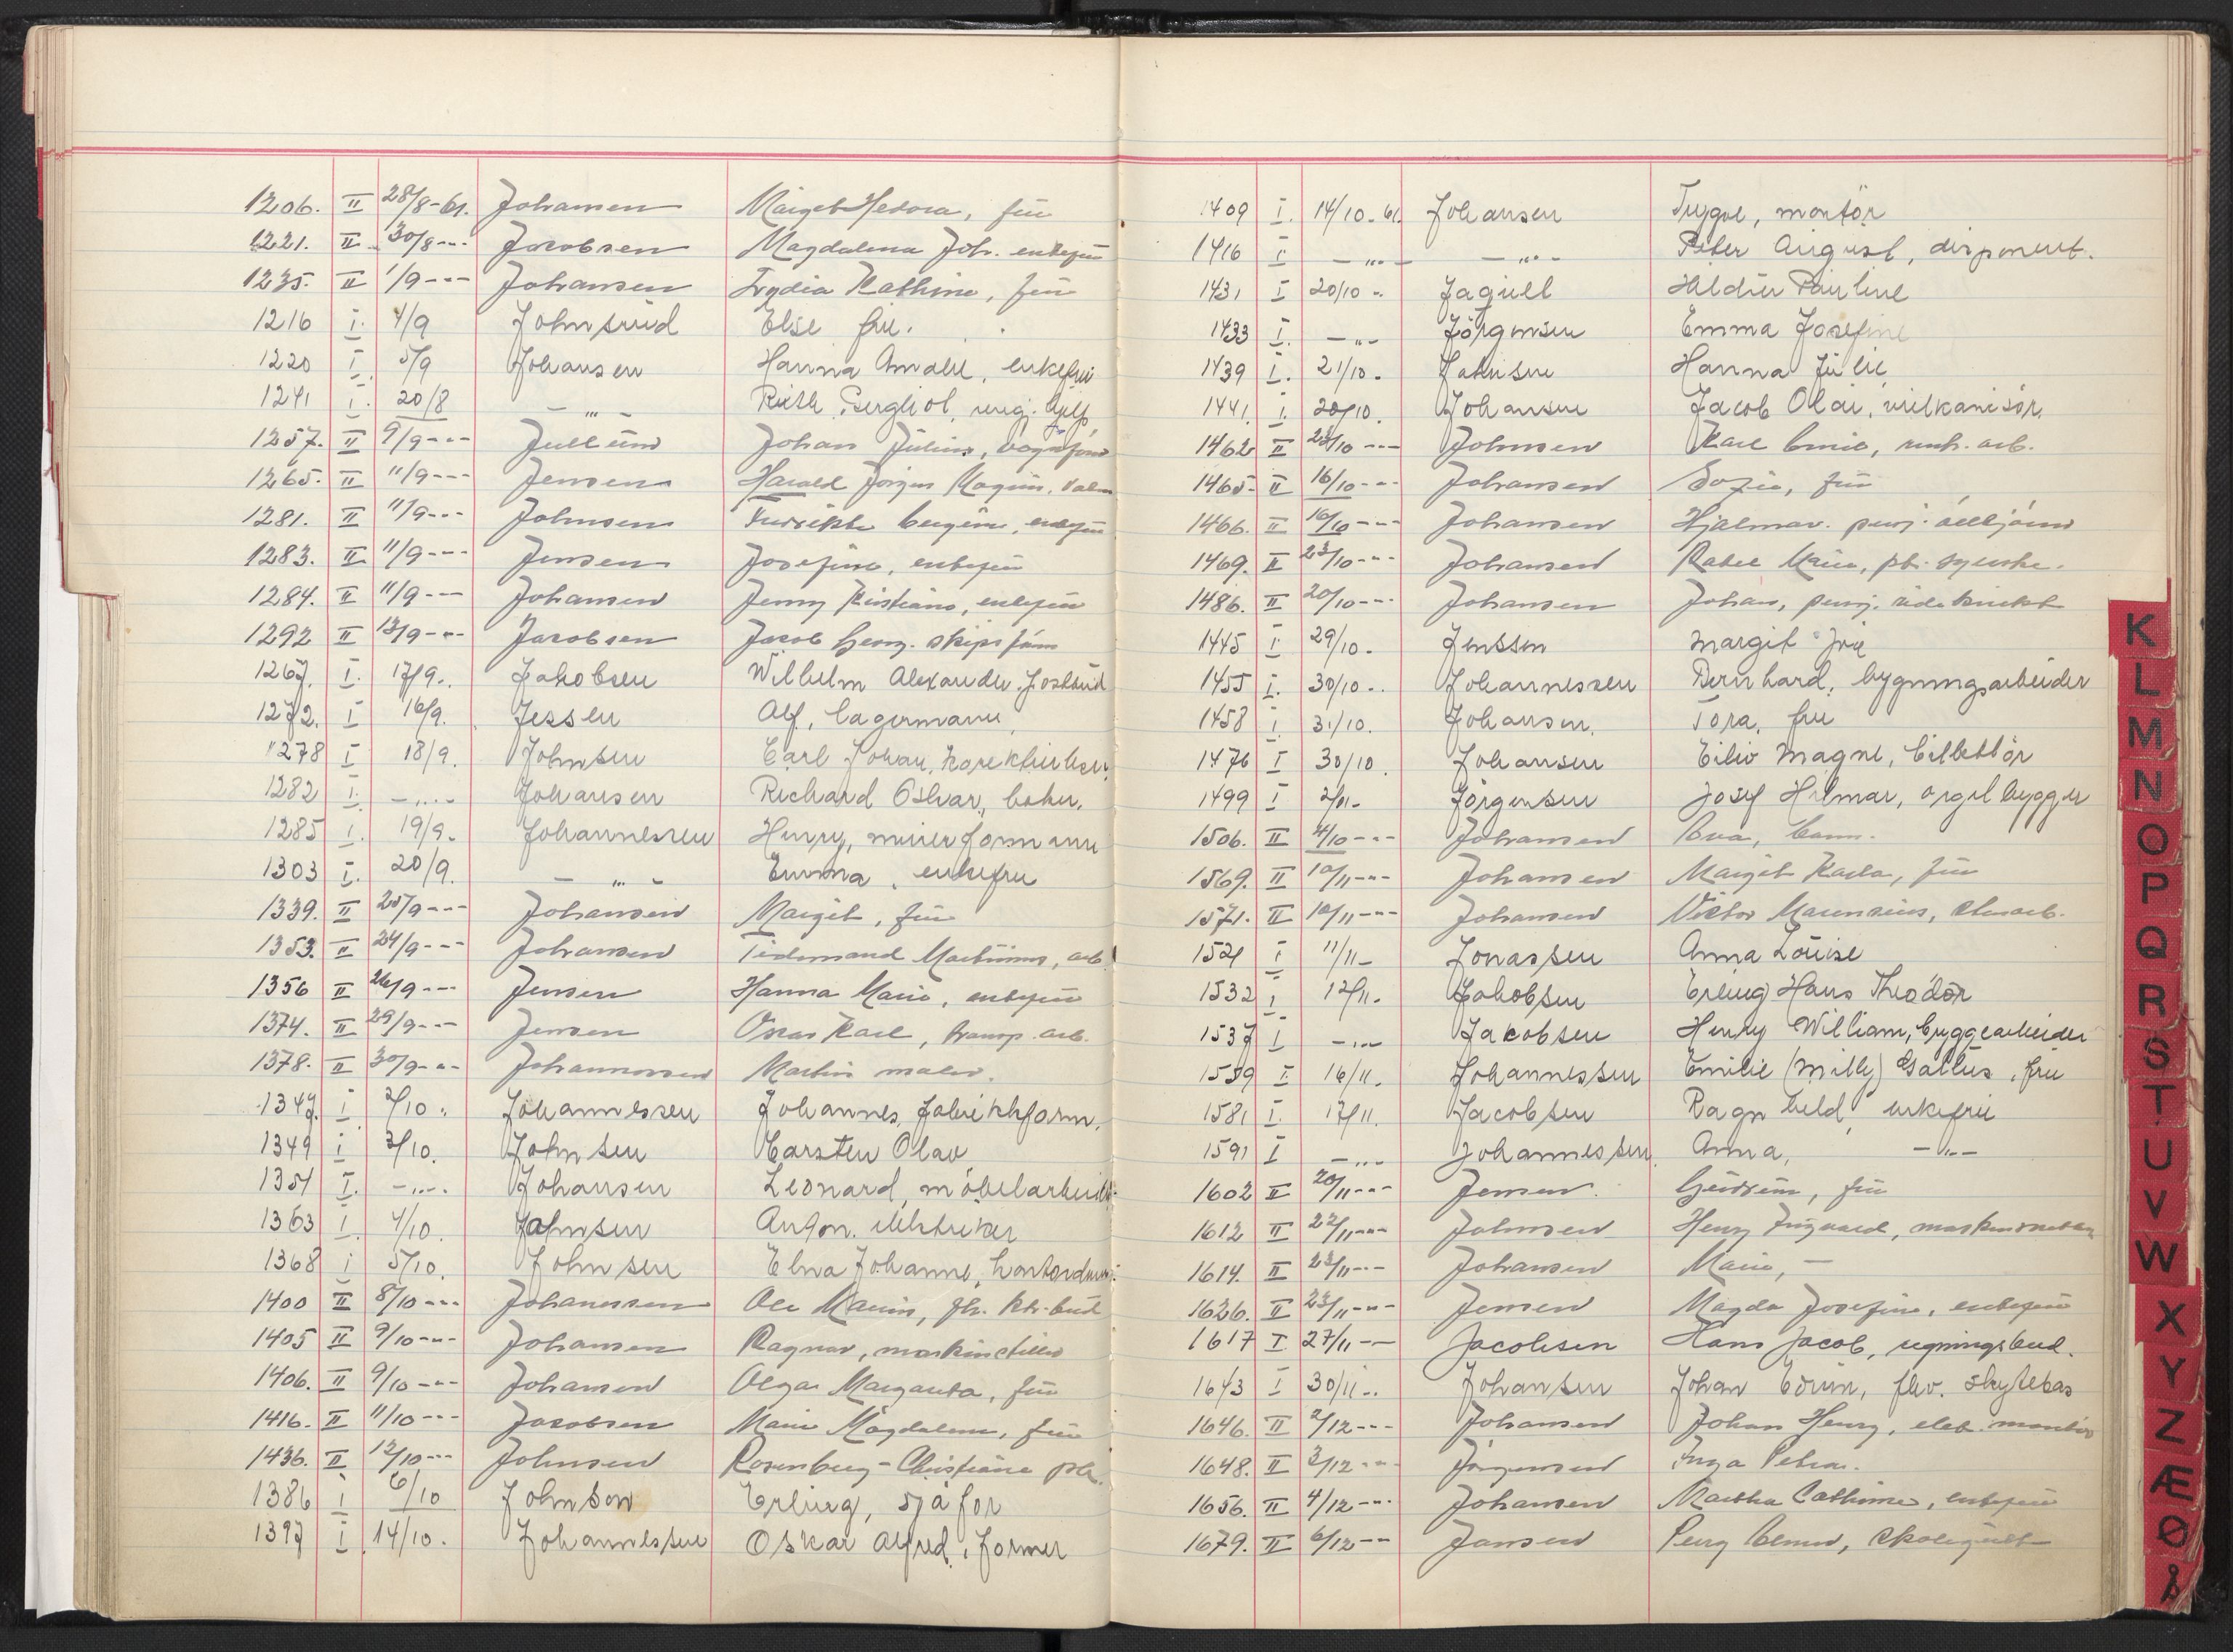 1206. II 28/8-61. Johansen Margit Medora, frü
1221. II 30/8-"- Jacobsen Magdalena Joh. enkefrü
1235. II 1/9-"- Johansen Lydia Kathine, frü
1216 I. 4/9 Johnsrüd Else frü.
1220 I. 5/9 Johansen Hanna Amalie, enkefrü
1241 I. 20/8 -"- Rüth Bergliot, reng.hjelp
1257. II 9/9-"- Jüllüm Johan Jülius,
1265. II 11/9-"- Jensen Harald Jörgen
1281. II 11/9-"- Johnsen Fredrikke enkefrü
1283. II 11/9-"- Jensen Josefine, enkefrü
1284. II 11/9-"- Johansen Jenny Kristiane, enkefrü
1292 II 13/9-"- Jacobsen Jacob Georg. skipsförer
1267. I. 17/9.. Jakobsen Wilhelm Alexander. Postbüd
1272. I 16/9. Jessen Alf, lagermann
1278 I 18/9. Johnsen Carl Johan, korekturleser
1282 I. -"- Johansen Richard Oskar, baker.
1285 I. 19/9. Johannessen Henry, mürerformann
1303 I. 20/9. -"- Emma, enkefrü
1339. II 25/9-"- Johansen Margit, frü
1353. II 24/9-"- Johansen Tidemand Martinius, arb.
1356 II 26/9-"- Jensen Hanna Marie, enkefrü
1374. II 29/9-"- Jensen Oscar Karl, transp. arb.
1378. II 30/9-"- Johannessen Martin maler.
1347. I 2/10. Johannessen Johannes, fabrikkform.
1349 I 3/10. Johnsen Carsten Olav
1351 I. -"- Johansen Leonard, möbelarbeider
1363 I. 4/10. Johnsen Anton.
1368 I 5/10. Johnsen Elna Johanne, kontordame.
1400 II 8/10-"- Johanessen Ole Marius, fh. ktr.büd
1405 II 9/10-"- Johansen Ragnar, maskinstiller
1406. II 9/10-"- Johansen Olga Margareta, frü
1416. II 11/10-"- Jacobsen Marie Magdalene, frü
1436. II 12/10-"- Johnsen Rosenberg-Christiane
1386 I 6/10 Johnson Erling, sjåför
1397 I 14/10. Johannessen Oskar Alfred, former
1409 I. 14/10-61. Johansen Trygve, montör
1416 I. -"- -"- Peter August, disponent.
1431 I 20/10 -. Jaquet Hildür Paüline
1433 I. -"- Jörgensen Emma Josefine
1439 I. 21/10. Johnsen Hanna Jülie
1441. I. 20/10. Johansen Jacob Olai, vülkanisör.
1462 II 23/10-"- Johnsen Karl Emil, renh. arb.
1465- II 16/10-"- Johansen Sofie, frü
1466. II 16/10-"- Johansen Hjalmar. penj.
1469. II 23/10-"- Johansen Rakel Marie, pb. syerske.
1486. II 20/10-"- Johansen Johan, penj.
1445 I. 29/10. Jenssen Margit
1455 I. 30/10-. Johannessen Bernhard, bygningsarbeider
1458 I. 31/10. Johansen. Tora, frü
1476 I 30/10. Johansen Eiliv Magne, billettör
1499 I 2/11- Jörgensen Josef Hilmar, orgelbygger
1506. II 4/10-"- Johansen Eva, barn.
1569. II 10/11-"- Johansen Margit Karla, frü
1571. II 10/11-"- Johansen Viktor
1521 I 11/11- Jonassen Anna Loüise
1532 I 12/11. Jakobsen Erling Hans Theodor
1537 I -"- Jacobsen Henry William, byggearbeider
1559 I 16/11. Johannessen Emilie (Milly) Gallus, frü
1581 I. 17/11. Jacobsen Ragnhild enkefrü
1591 I -"- Johannessen Anna, -"-
1602 II 20/11-"- Jensen. Güdrün, frü
1612 II 22/11-"- Johnsen Henry Ingvard,
1614. II 23/11-"- Johansen Marie, -
1626. II 23/11-"- Jensen Magda Josefine, enkefrü
1617 I 27/11 -- Jacobsen Hans Jacob, regningsbud.
1643 I 30/11-. Johansen Johan Edvin, fhv. skytebas
1646. II 2/12-"- Johansen Johan Henry, elek. montör
1648. II 3/12-"- Jörgensen Inga Petra.
1656. II 4/12-"- Johansen Martha Cathrine, enkefrü
1679. II 6/12-- Jansen skolegütt
K
L
M
N
O
P
Q
R
S
T
U
V
W
X
Y
Z
Æ
Ø
Å